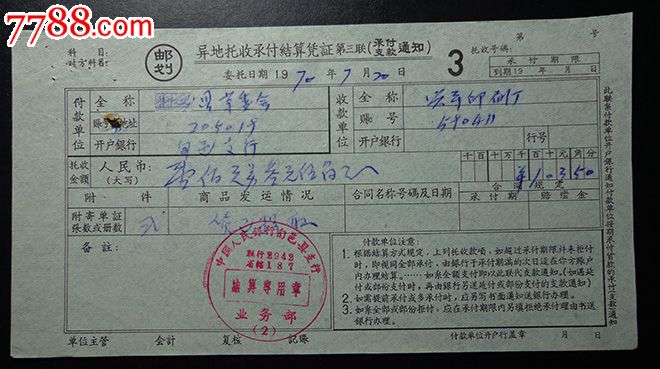 7788.com
科目
对方科目:
邮划
异地托收承付结算凭证 第三联(承付支款通知)
第 号
托收号码:
委托日期 1970年7月20日
3
承付期限
到期19 年 月 日
付款单位
全称
革委会
账号或地址
205019
开户银行
支行
收款单位
全称
印刷厂
账号
开户银行
行号
托收金额
人民币:
(大写)
千百十万千百十元角分
¥10350
附件
商品发运情况
合同名称号码及日期
合同规定
承付期
赔偿金
附寄单证张数或册数
备注:
中国人民银行南邑县支行
联行2942
省辖187
结算专用章
业务部
(2)
付款单位注意:
1.根据结算方式规定,上列托收款项,如超过承付期限并未拒付
时,即视同全部承付,由银行于承付期满的次日还在你方账户
内办理结算。……如系全额支付即以此联代支款通知。(如遇延
付或部份支付时,再由银行另送延付或部份支付的支款通知)
2.如需提前承付或多承付时,应另写书面通知送银行办理。
3.如系全部或部份拒付,应在承付期限内另填拒绝承付理由书送
银行办理。
单位主管 会计 复核 记账
付款单位开户行盖章 月 日
此联系付款单位开户银行通知付款单位按期承付货款的承付(支款)通知